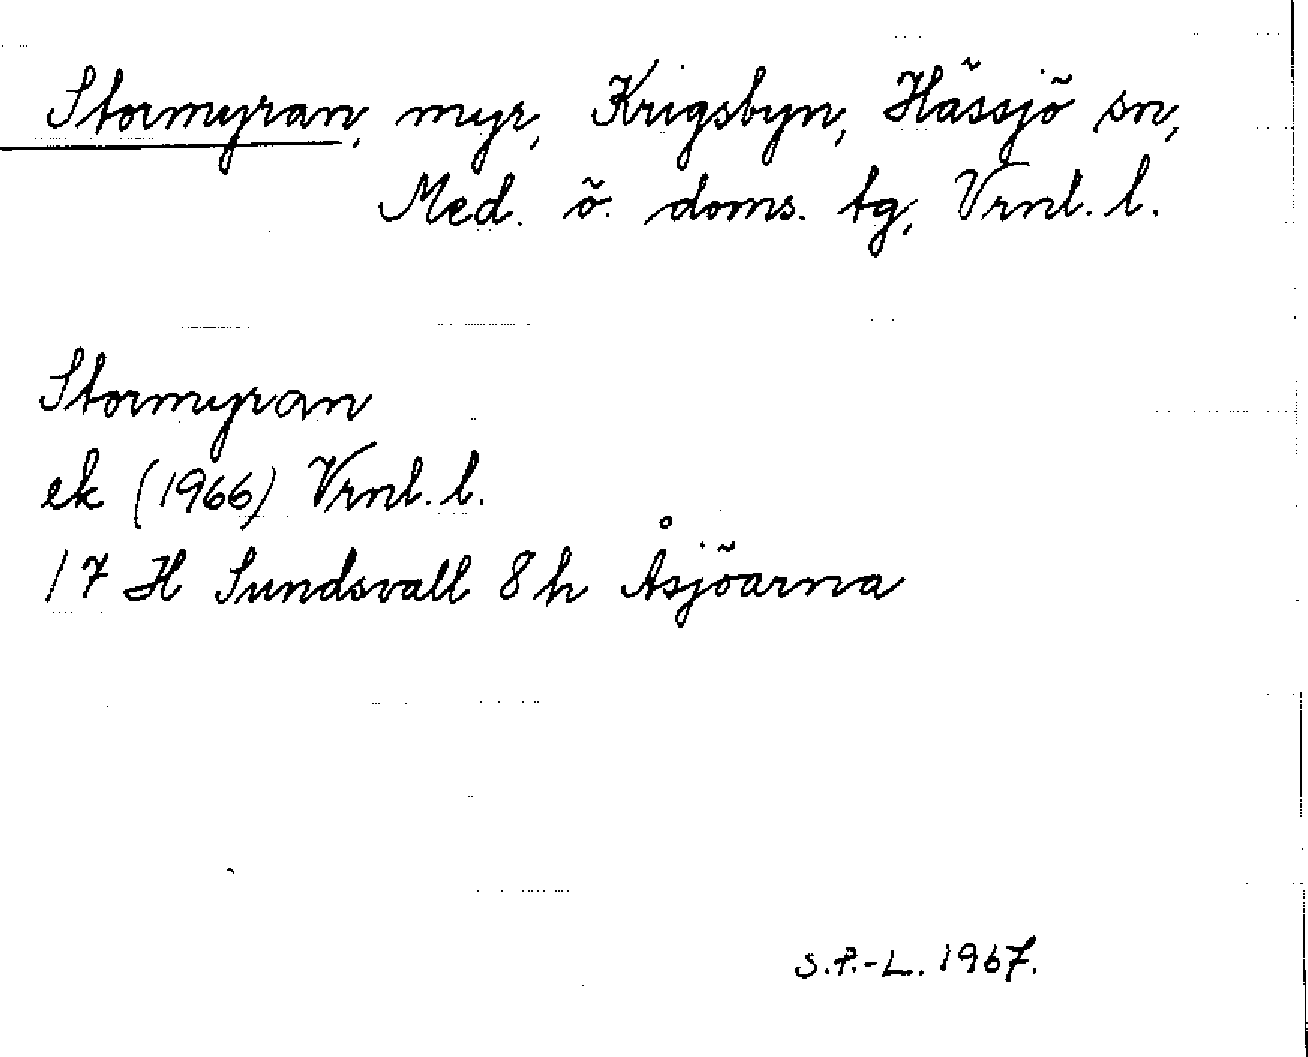 Stormyran, myr, Krigsbyn, Hässjö sn,
Med. ö. doms. tg, Vrnl. l.
Stormyran
ek (1966) Vrnl. l.
17 H Sundsvall 8 h Åsjöarna
S.P.-L. 1967.